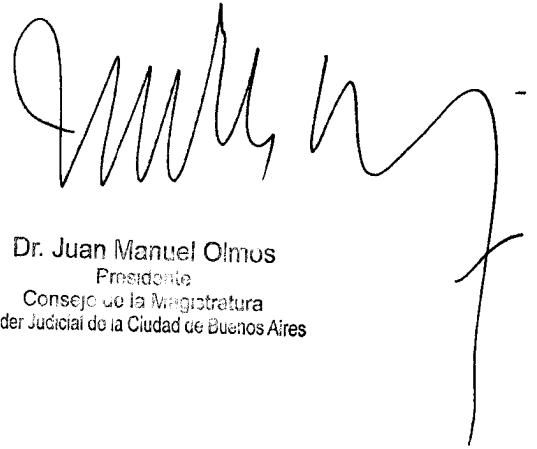 Dr. Juan Manuel Olmos
Presidente
Consejo de la Magistratura
der Judicial de la Ciudad de Buenos Aires